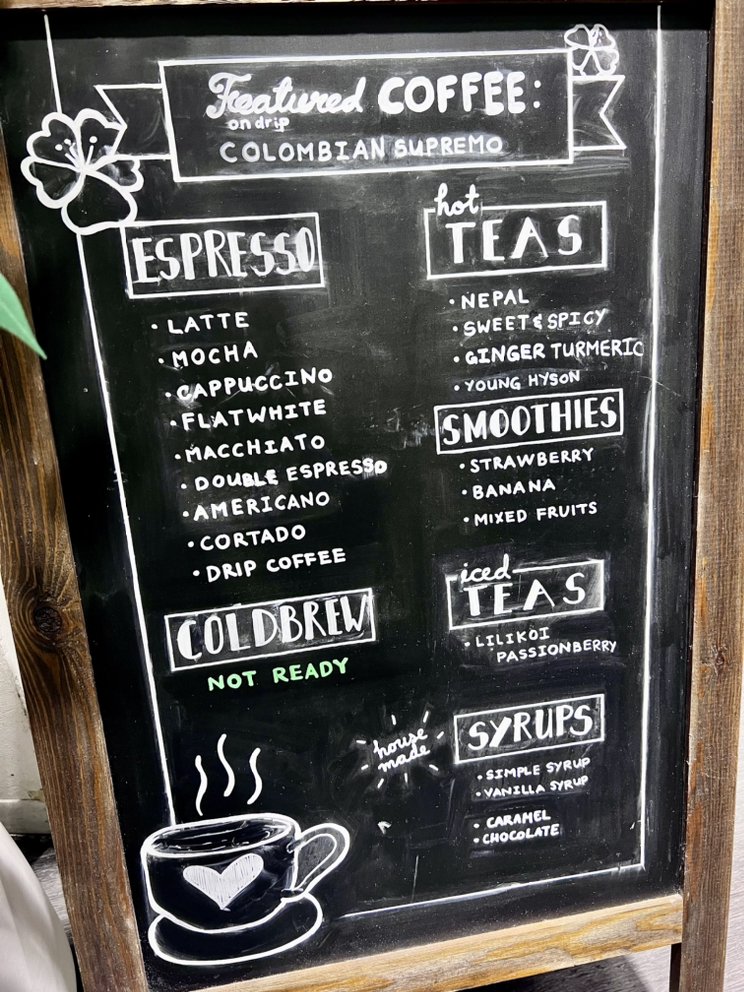 Featured COFFEE:
on drip
COLOMBIAN SUPREMO
ESPRESSO
• LATTE
• MOCHA
• CAPPUCCINO
• FLATWHITE
• MACCHIATO
• DOUBLE ESPRESSO
• AMERICANO
• CORTADO
• DRIP COFFEE
COLDBREW
NOT READY
hot
TEAS
• NEPAL
• SWEET & SPICY
• GINGER TURMERIC
• YOUNG HYSON
SMOOTHIES
• STRAWBERRY
• BANANA
• MIXED FRUITS
iced
TEAS
• LILIKOI
PASSIONBERRY
house
made
SYRUPS
• SIMPLE SYRUP
• VANILLA SYRUP
• CARAMEL
• CHOCOLATE